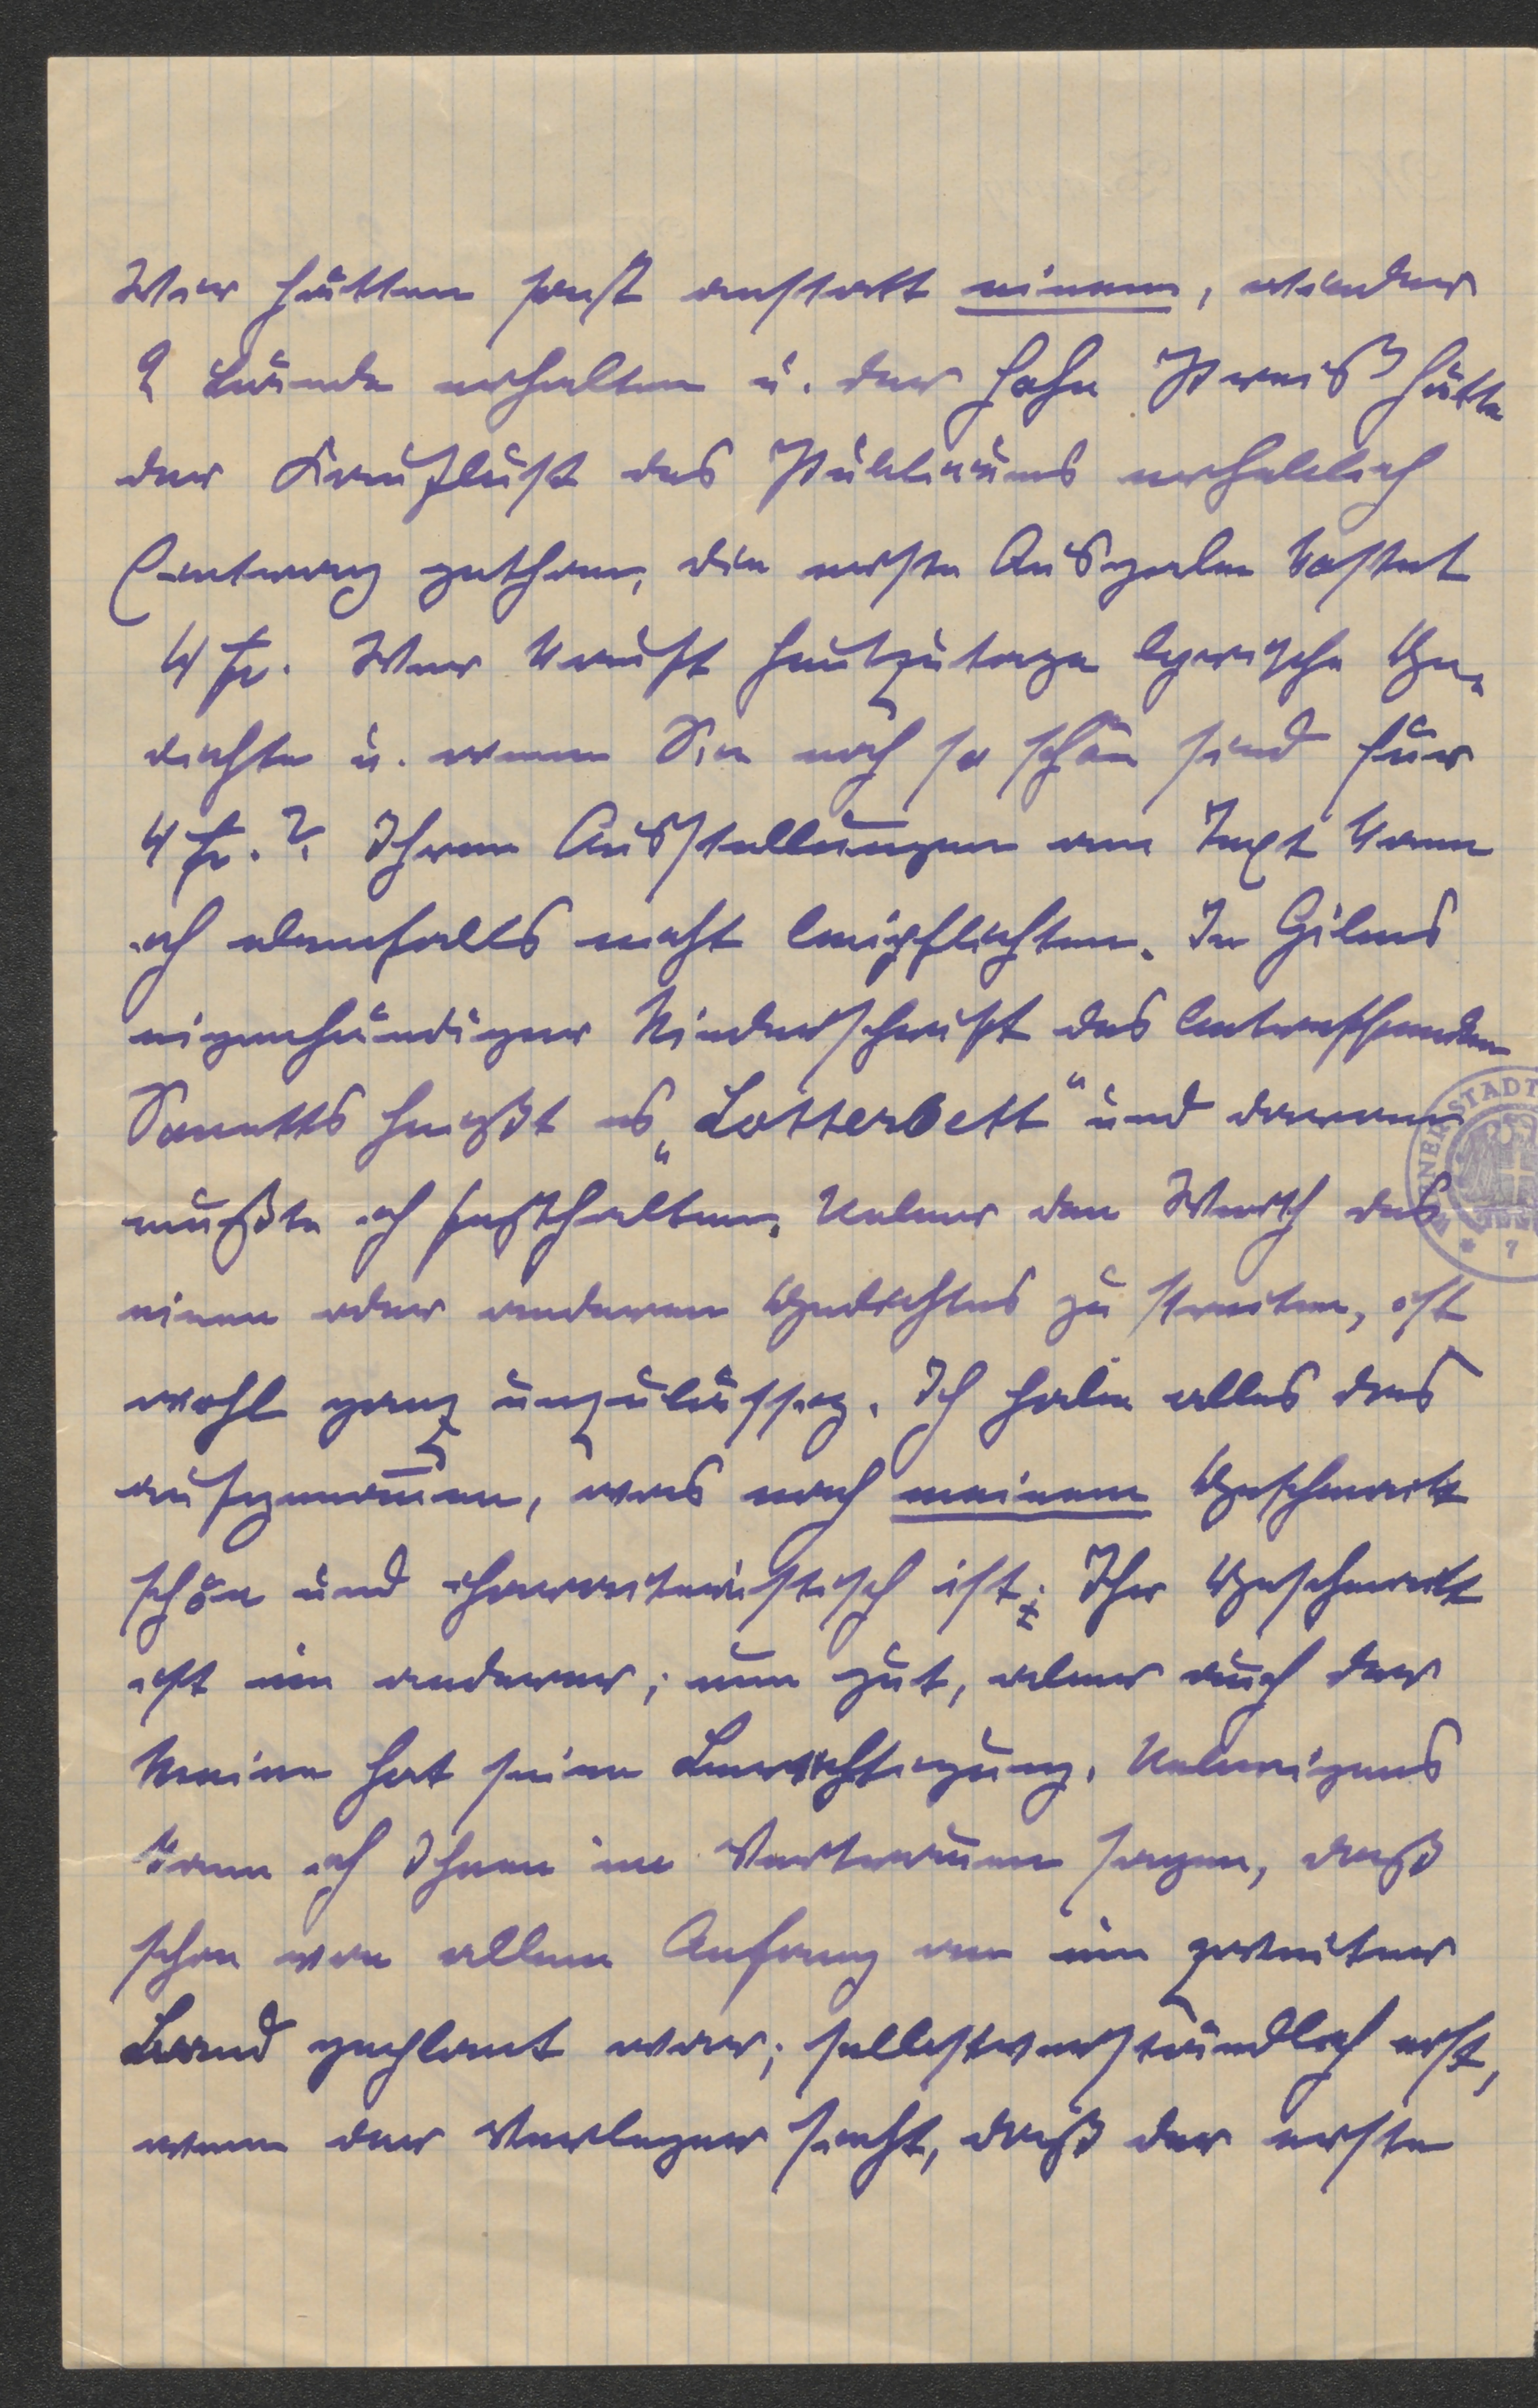 Wir hätten sonst anstatt einem, wieder
2 Bände erhalten u. der hohe Preis hätte
der Kauflust des Publicums erheblich
Eintrag gethan, die erste Ausgabe kostet
4 fr. Wer kauft heutzutage lyrische Ge-
dichte u. wenn Sie noch so schön sind für
4 fr.? Ihren Ausstellungen am Text kann
ich ebenfalls nicht beipflichten. In Gilms
eigenhändiger Niederschrift des betreffenden
Sonetts heißt es „Lotterbett“ und daran
mußte ich festhalten. Ueber den Werth des
einen oder anderen Gedichtes zu streiten, ist
wohl ganz unzulässig. Ich habe alles das
aufgenommen, was nach meinem Geschmack
schön und charakteristisch ist; Ihr Geschmack
ist ein anderer; nun gut, aber auch der
Meine hat seine Berechtigung. Uebrigens
kann ich Ihnen im Vertrauen sagen, daß
schon von allem Anfang an ein zweiter
Band geplant war; selbstverständlich erst,
wenn der Verleger sieht, daß der erste
STADT
7